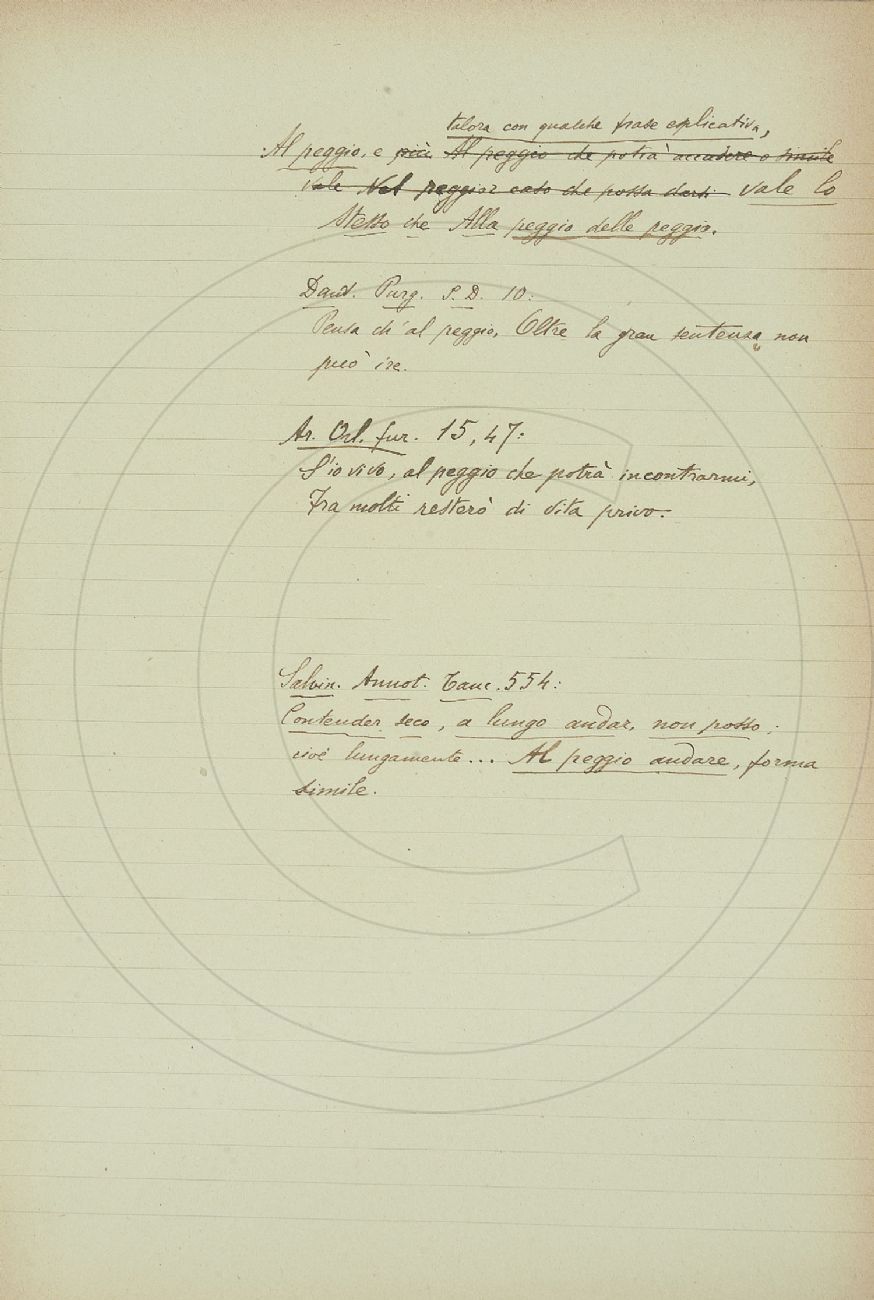 talora con qualche frase esplicativa,
Al peggio, e più Al peggio che potrà accadere o simile
vale Nel peggior caso che possa darsi vale lo
Stesso che Alla peggio delle peggio.
Dant. Purg. S. D. 10:
Pensa ch'al peggio, Oltre la gran sentenza non
può ire.
Ar. Orl. fur. 15, 47:
S'io vivo, al peggio che potrà incontrarmi,
Fra molti resterò di vita privo.
Salvin. Annot. Tanc. 554:
Contender seco, a lungo andar, non posso;
cioè lungamente... Al peggio andare, forma
simile.